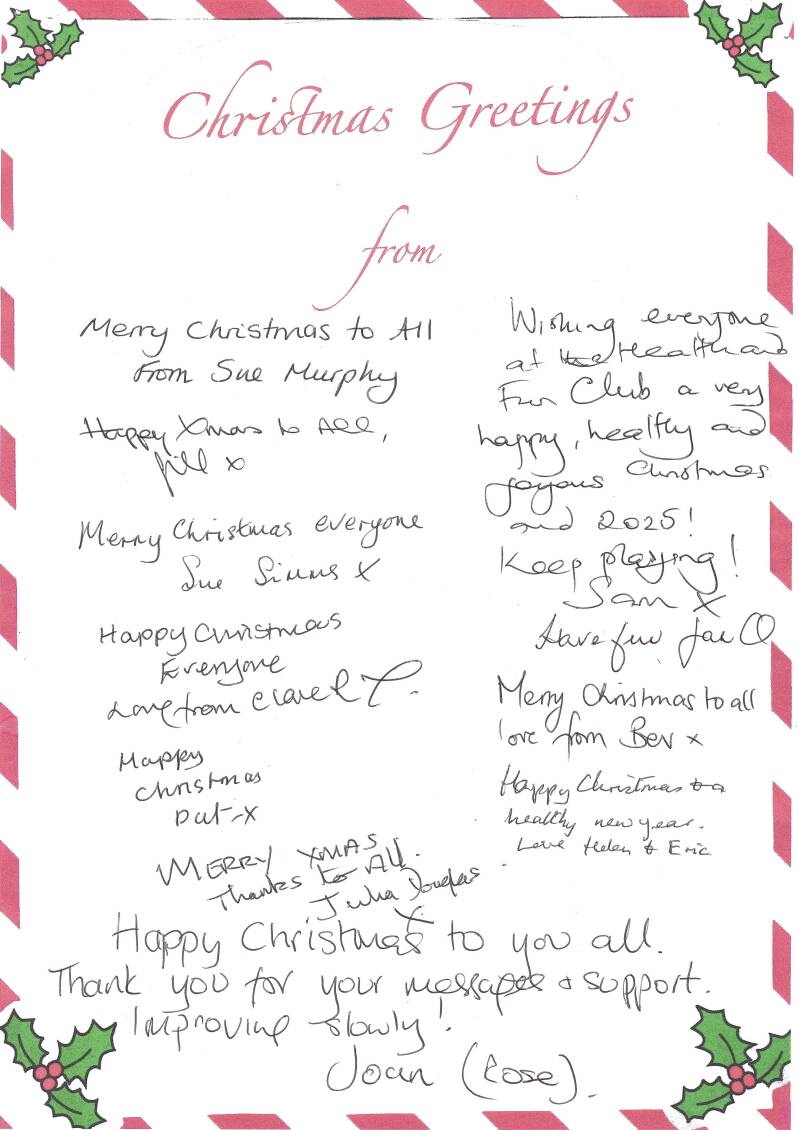 Christmas Greetings
from
Merry Christmas to All
From Sue Murphy
Happy Xmas to All,
Jill x
Merry Christmas everyone
Sue Simms X
Happy Christmas
Everyone
Love from Clare
Happy
Christmas
Pat-X
MERRY XMAS.
Thanks to All.
Julia Douglas
X
Wishing everyone
at the Health and
Fun Club a very
happy, healthy and
joyous Christmas
and 2025!
Keep playing!
Sam X
Have fun
Merry Christmas to all
love from Bev x
Happy Christmas & a
healthy new year.
Love Helen & Eric
Happy Christmas to you all.
Thank you for your messages & support.
Improving slowly!
Joan (Rose).